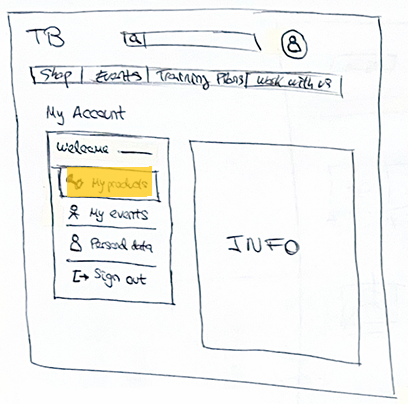 TB
Shop Events Training Plans Work with us
My Account
Welcome
My products
My events
Personal data
Sign out
INFO